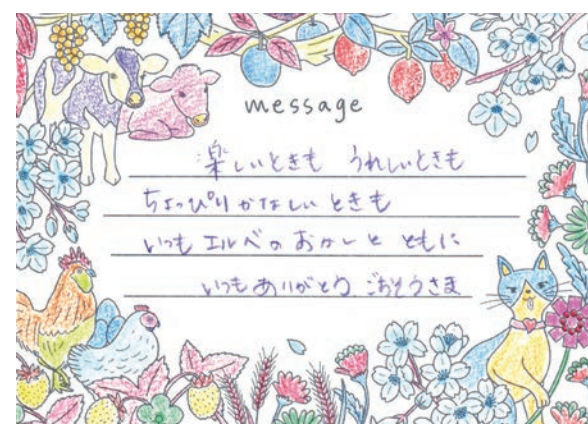 message
楽しいときも うれしいときも
ちょっぴりかなしいときも
いつも エルベのおかしと ともに
いつもありがとう ごちそうさま